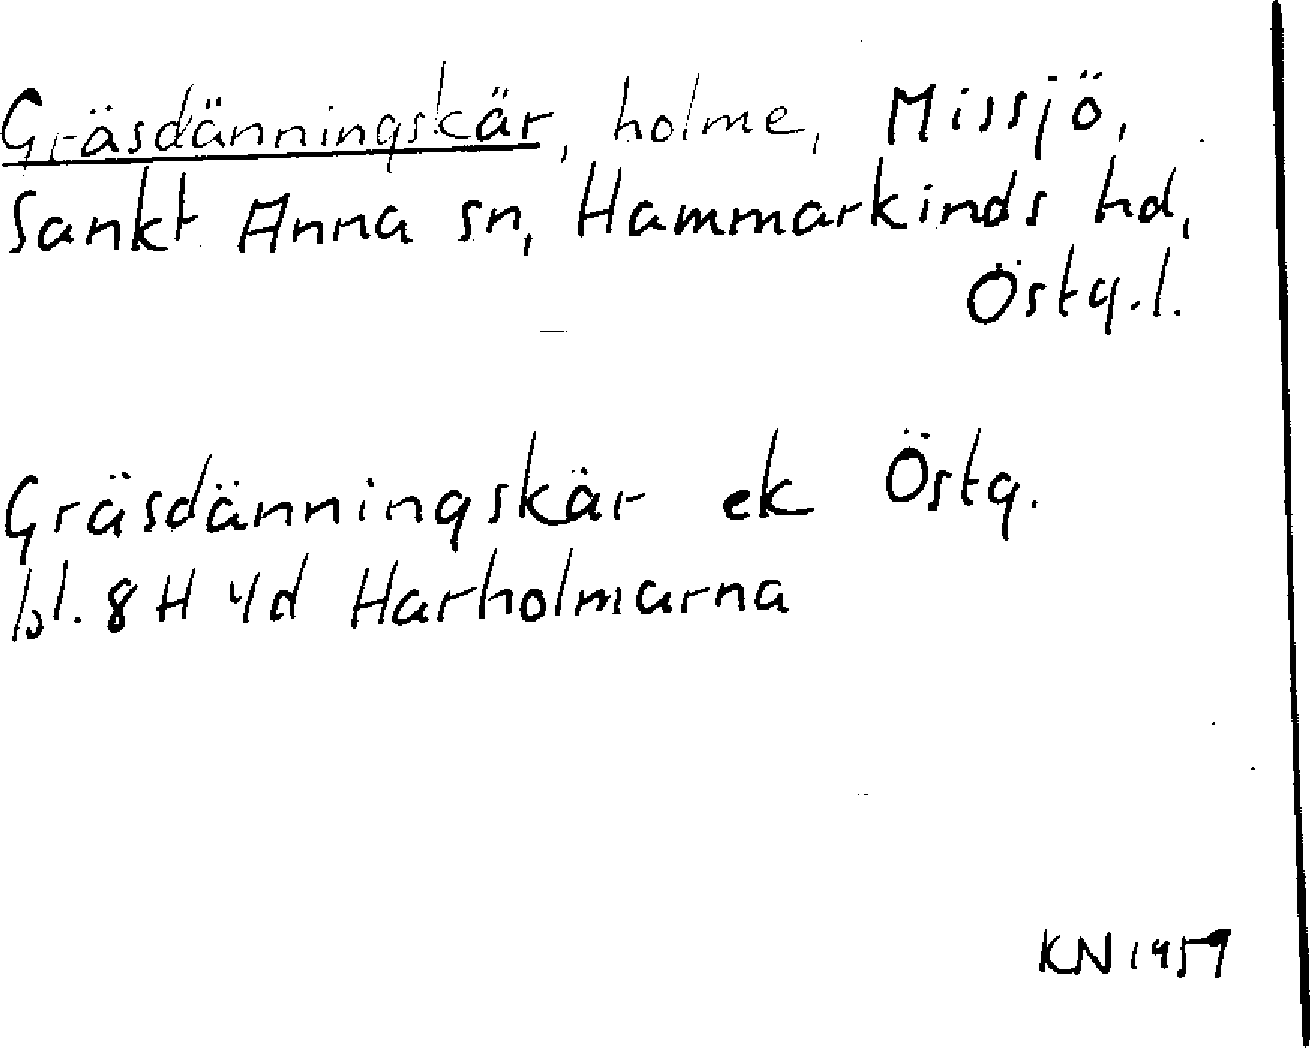 Gräsdänningskär, holme, Missjö,
Sankt Anna sn, Hammarkinds hd,
Östg.l.
Gräsdänningskär ek Östg.
bl. 8H 4d Harholmarna
KN 1959